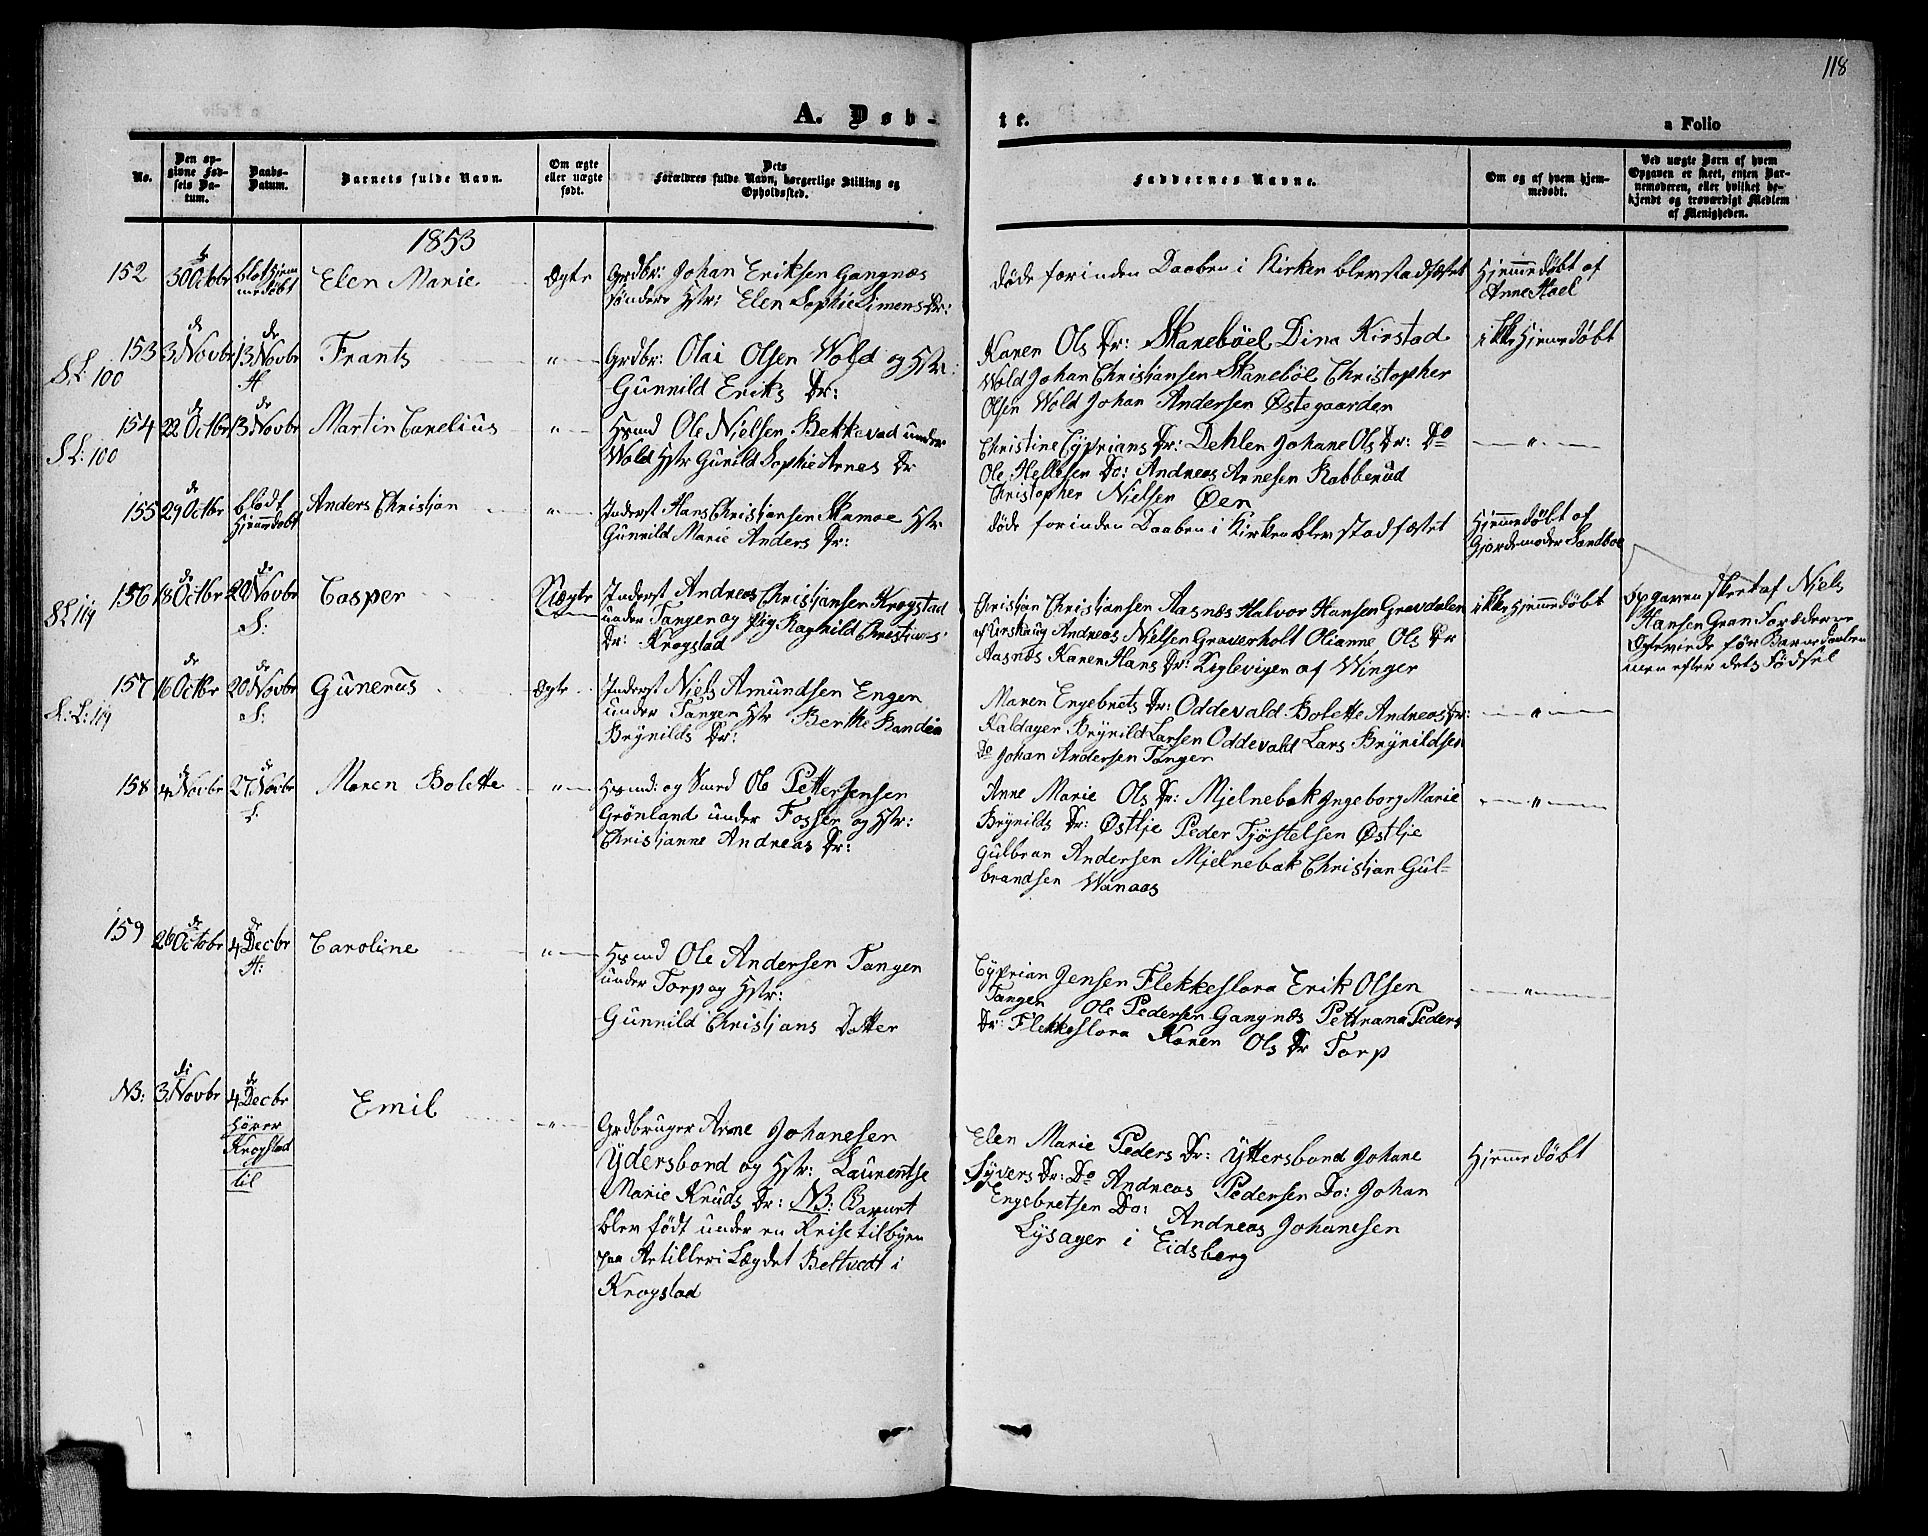 118
A. Døb-
te.
a Folio
No.
Den op-
givne Fød-
sels Da-
tum.
Daabs-
Datum.
Barnets fulde Navn.
Om ægte
eller uægte
født.
Dets
Forældres fulde Navn, borgerlige Stilling og
Opholdssted.
Faddernes Navne.
Om og af hvem hjem-
medøbt.
Ved uægte Børn af hvem
Opgaven er skeet, enten Bar-
nemoderen, eller hvilket be-
kjendt og troværdigt Medlem
af Menigheden.
1853
152
30 Octobr
blot hjem
medøbt
Elen Marie
Ægte
Grdbr: Johan Eriksen Gangnæs
søndere Hstr: Elen Sophie Simens Dr:
døde forinden Daaben i Kirken blev stadfæstet
Hjemmedøbt af
Anne Stael
153
S L: 100
de
3 Novbr
de
13 Novbr
H
Frants
"
Grdbr: Olai Olsen Wold og Hstr:
Gunnild Eriks Dr:
Karen Ols Dr: Skanebøel Dina Kirstad
Wold Johan Christjansen Skanebøl Christopher
Olsen Wold Johan Andersen Østegaarden
ikke Hjemmedøbt
154
S L: 100
de
22 Octbr
de
13 Novbr
Martin Carelius
"
Hsmd Ole Nielsen Bekkevad under
Wold Hstr Gunild Sophie Arnes Dr
Christine Cyprians Dr: Dehlen Johane Ols Dr: Do
Ole Hellesen Do: Andreas Arnesen Rabberud
Christopher Nielsen Øen
"
155
de
29 Octbr
blodt
Hjemmedøbt
Anders Christjan
"
Inderst Hans Christjansen Skamoe Hstr
Gunnild Marie Anders Dr:
døde forinden Daaben i Kirken blev stadfæstet
Hjemmedøbt af
Gjordemoder Sandboe
156
S L 119
de
18 Octbr
de
20 Novbr
S:
Casper
Uægte
Inderst Andreas Christjansen Krogstad
under Tangen og Pig Ragnild Chrestians
Dr: Krogstad
Christjan Christjansen Aasnæs Halvor Hansen Gravdalen
af Urskaug Andreas Nielsen Graverholt Olianne Ols Dr
Aasnæs Karen Hans Dr: Keglevigen af Winger
ikke Hjemmedøbt
Opgaven skeet af Niels
Hansen Gran Forældrene
Ægteviede før Barnedaaben
men efter dets Fødsel
157
S: L: 119
de
16 Octbr
de
20 Novbr
S:
Gunerius
Ægte
Inderst Niels Amundsen Engen
under Tangen Hstr Berthe Randia
Brynilds Dr:
Maren Engebrets Dr: Oddevald Bolette Andreas Dr:
Kaldager Brynild Larsen Oddevald Lars Brynildsen
Do Johan Andersen Tangen
"
158
de
4 Novbr
de
27 Novbr
S:
Maren Bolette
"
Hsmd: og Smed Ole Pettersensen
Grönland under Fosser og Hstr:
Christjanne Andreas Dr:
Anne Marie Ols Dr: Mjelnebak Ingeborg Marie
Brynilds Dr: Østlje Peder Tjøstelsen Østlje
Gulbran Andersen Mjelnebak Christjan Gul-
brandsen Wanaas
"
159
de
26 Octobr
de
4 Decbr
H:
Caroline
"
Hsmd Ole Andersen Tangen
under Torp og Hstr:
Gunnild Christjans Datter
Cyprian Jensen Flekkeslora Erik Olsen
Tangen Ole Pedersen Gangnæs Pettrana Peders
Dr: Flekkeslora Karen Ols Dr Torp
"
NB:
di
3 Novbr
de
4 Decbr
hører
Krogstad
til
Emil
"
Grdbruger Arne Johanesen
Ydersbond og Hstr: Laurentse
Marie Knuds Dr: NB: Barnet
blev født under en Reise til byen
paa Artilleri Lægdet Beltvedt i
Krogstad
Elen Marie Peders Dr: Yttersbond Johane
Syvers Dr: Do Andreas Pedersen Do: Johan
Engebretsen Do: Andreas Johanesen
Lysager i Eidsberg
Hjemmedøbt